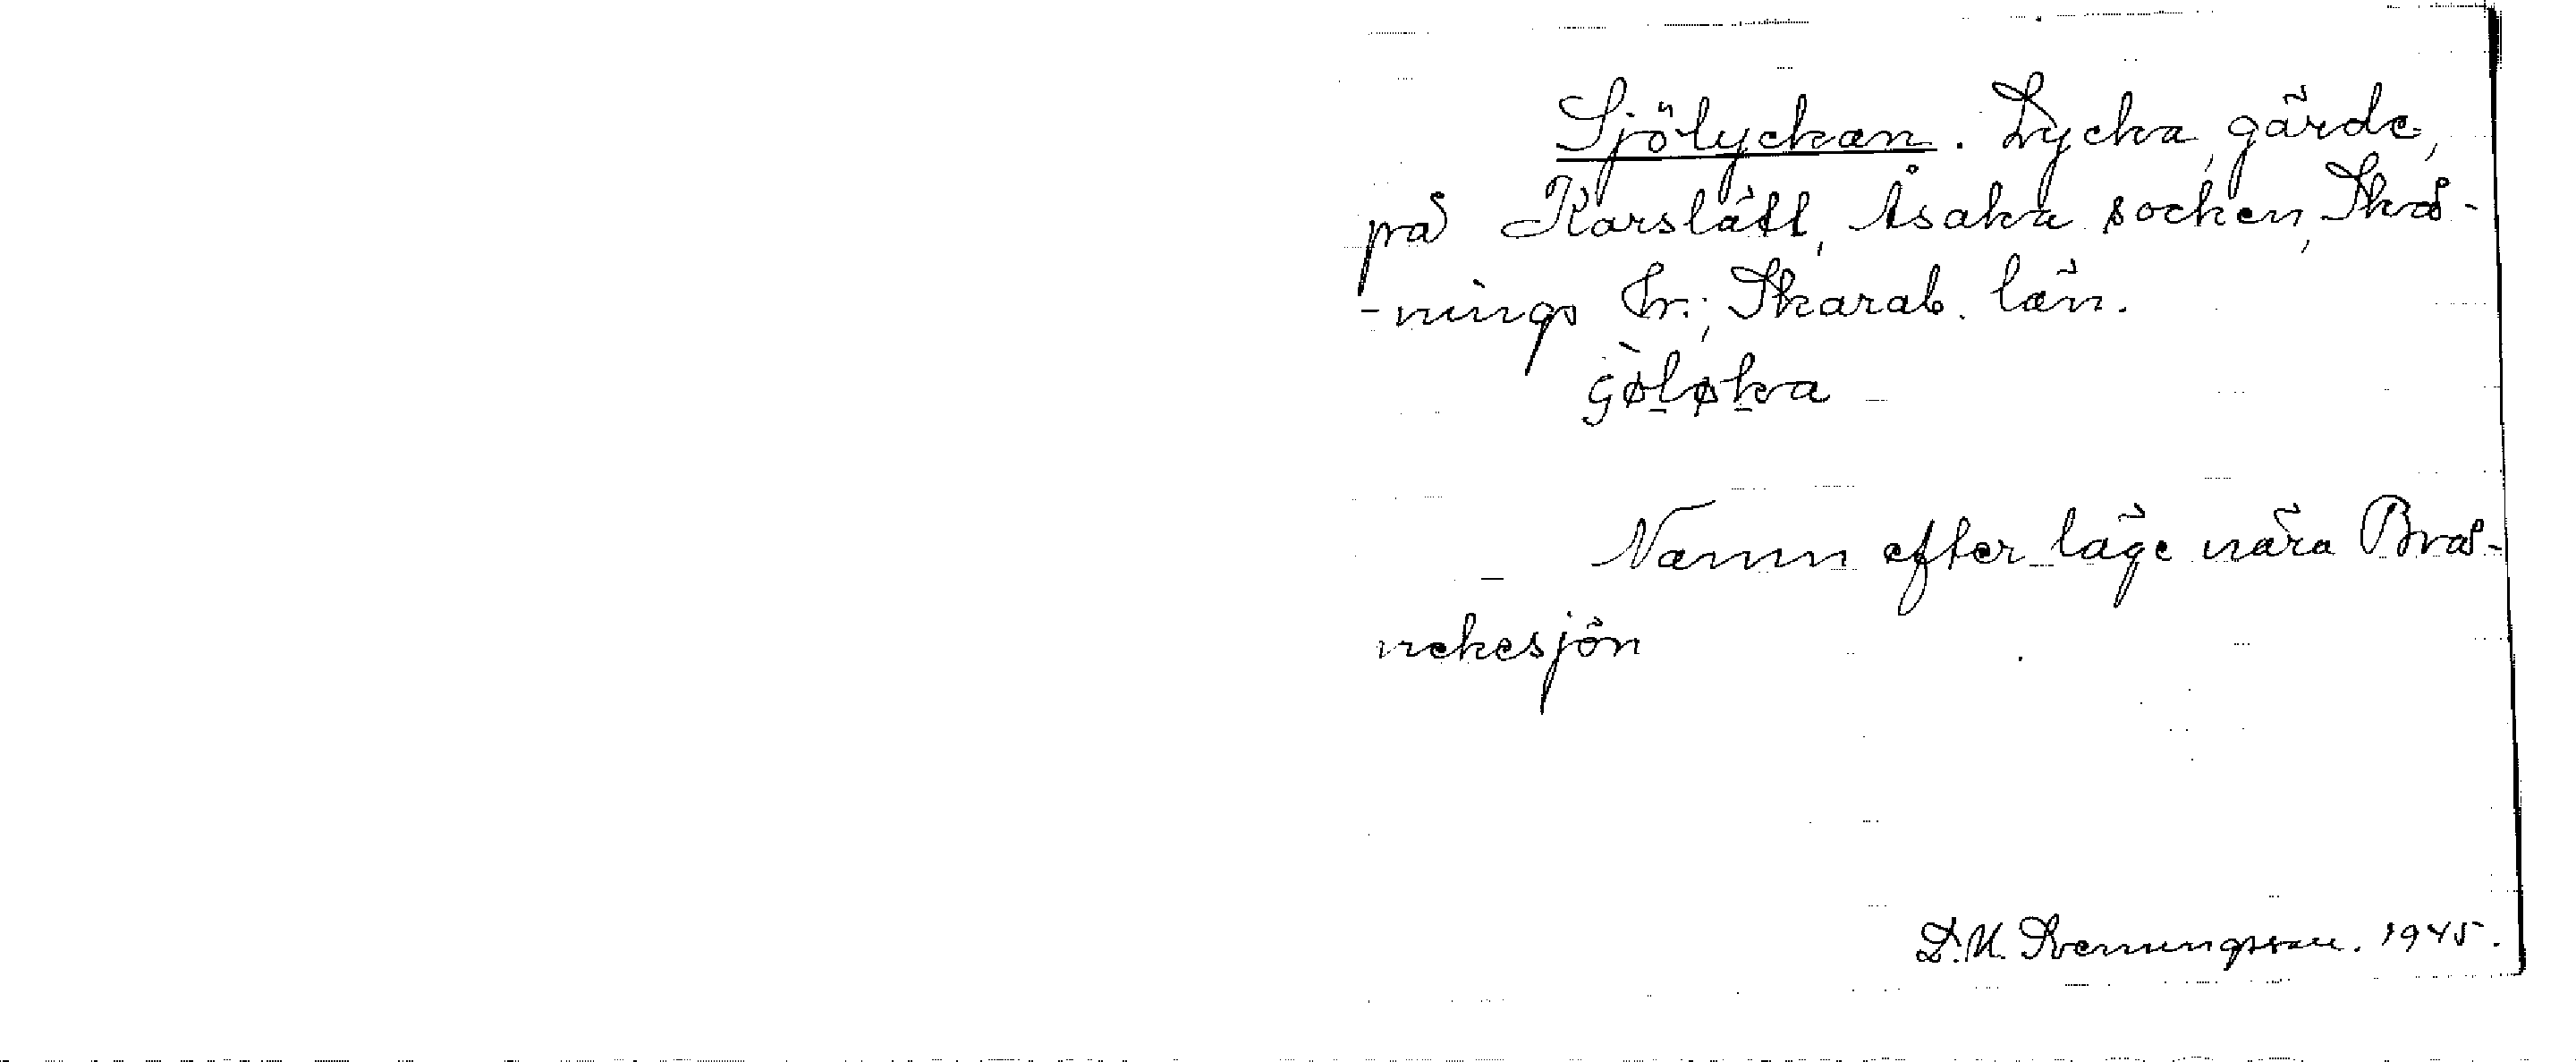 Sjölyckan. Lycka, gärde,
på Karslätt, Åsaka socken, Skå-
-nings hr., Skarab. län.
Namn efter läge nära Brå-
nekesjön
D.U. Svenungsson. 1945.